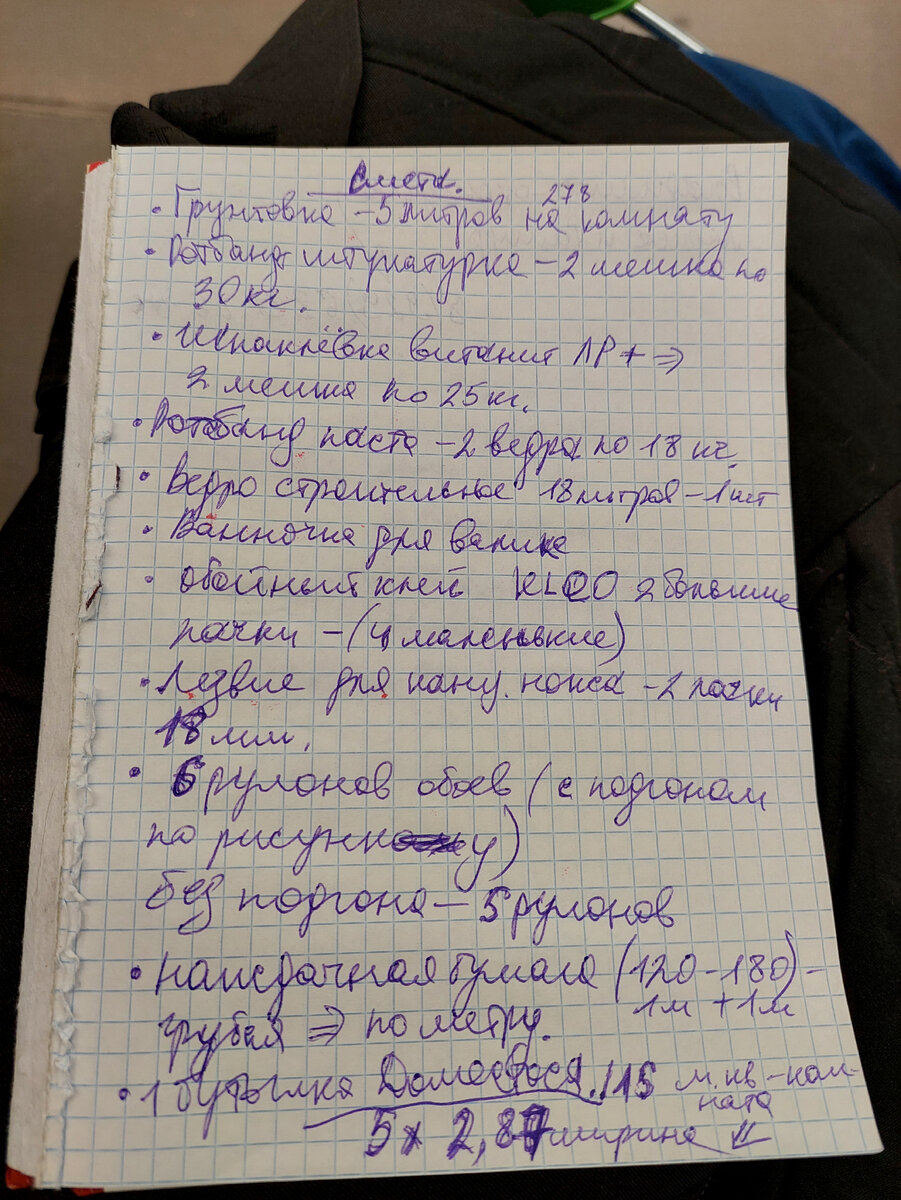 Смета.
• Грунтовка - 5 литров на комнату
278
• Ротбанд штукатурка - 2 мешка по
30 кг.
• Шпаклёвка витонит ЛР + ⇒
2 мешка по 25 кг.
• Ротбанд паста - 2 ведра по 18 кг.
• Ведро строительное 18 литров - 1 шт
• Ванночка для валика
• обойный клей KLEO 2 большие
пачки - (4 маленькие)
• Лезвие для канц. ножа - 2 пачки
18 мм.
• 6 рулонов обоев (с подгоном
по рисунку)
без подгона - 5 рулонов
• наждачная бумага (120 - 180) -
1м + 1м
грубая ⇒ по метру.
• 1 бутылка Доместоса. / 15 м.кв - ком-
ната
5 x 2,87 ширина